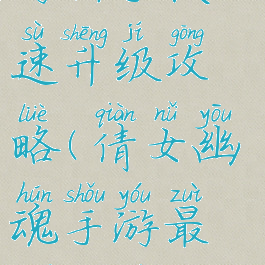 sù shēng jí gōng
速升级攻
lüè qiàn nǚ yōu
略(倩女幽
hún shǒu yóu zuì
魂手游最